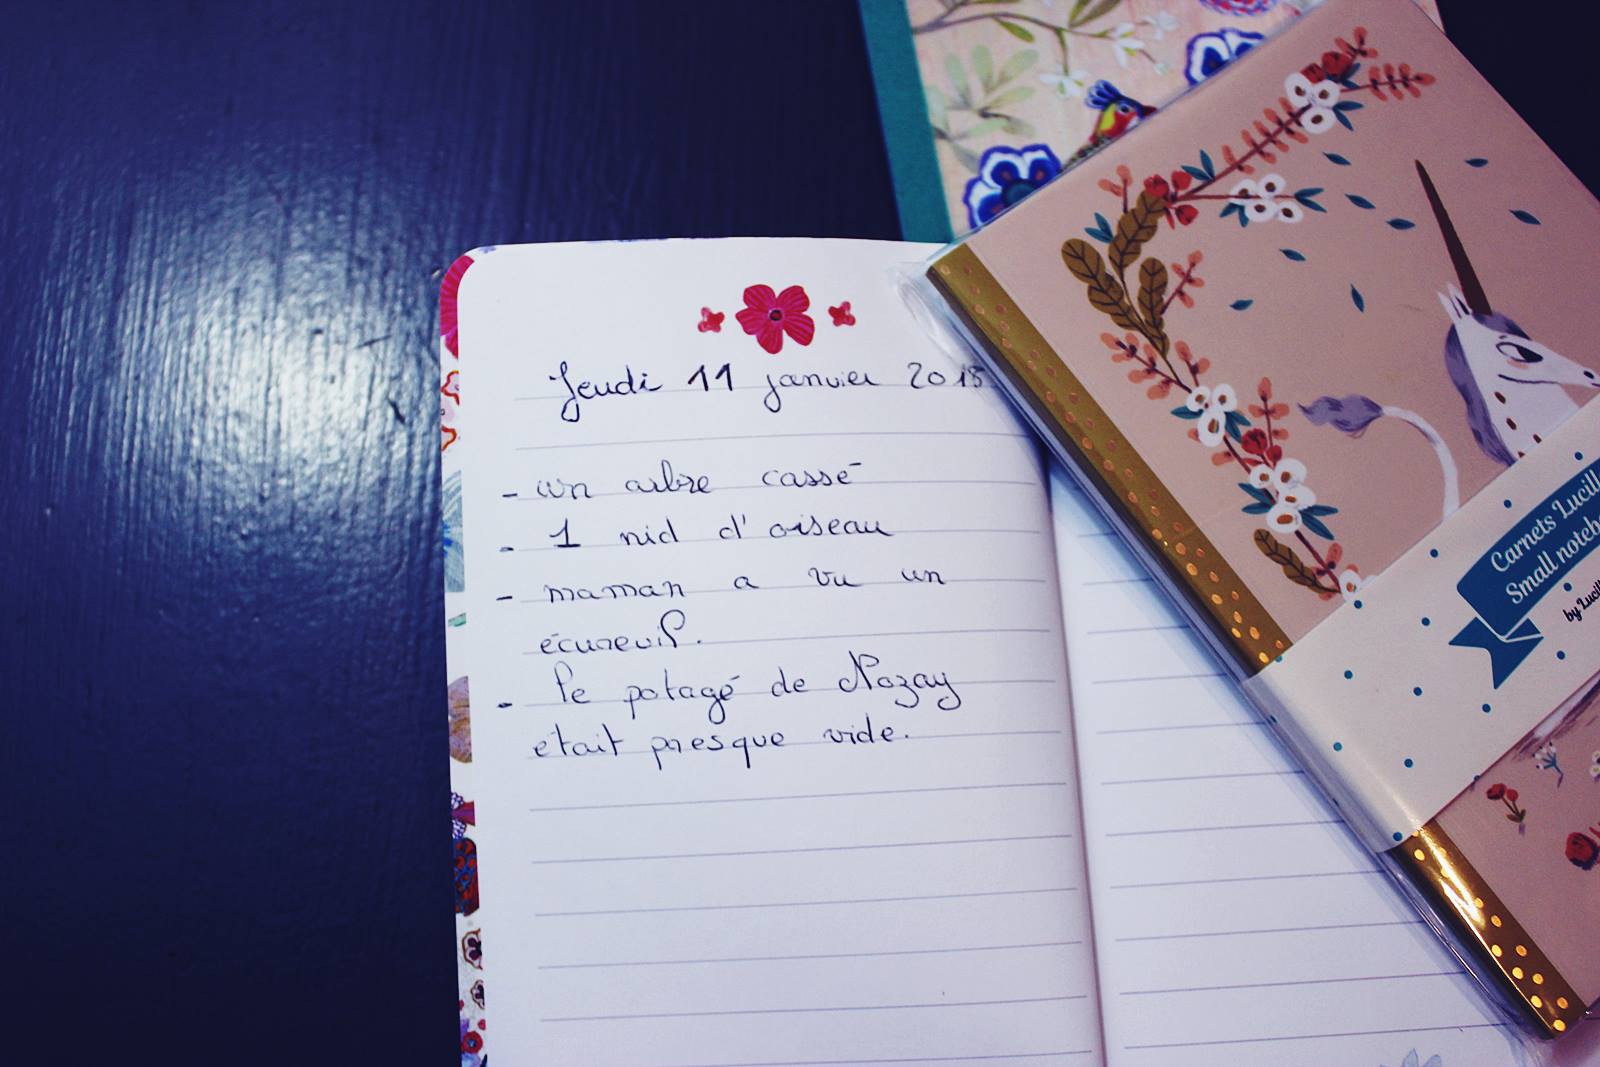 Jeudi 11 janvier 2018
- un arbre cassé
- 1 nid d'oiseau
- maman a vu un
écureuil.
- le potagé de Nozay
etait presque vide.
Carnets Lucill
Small noteb
by Lucill